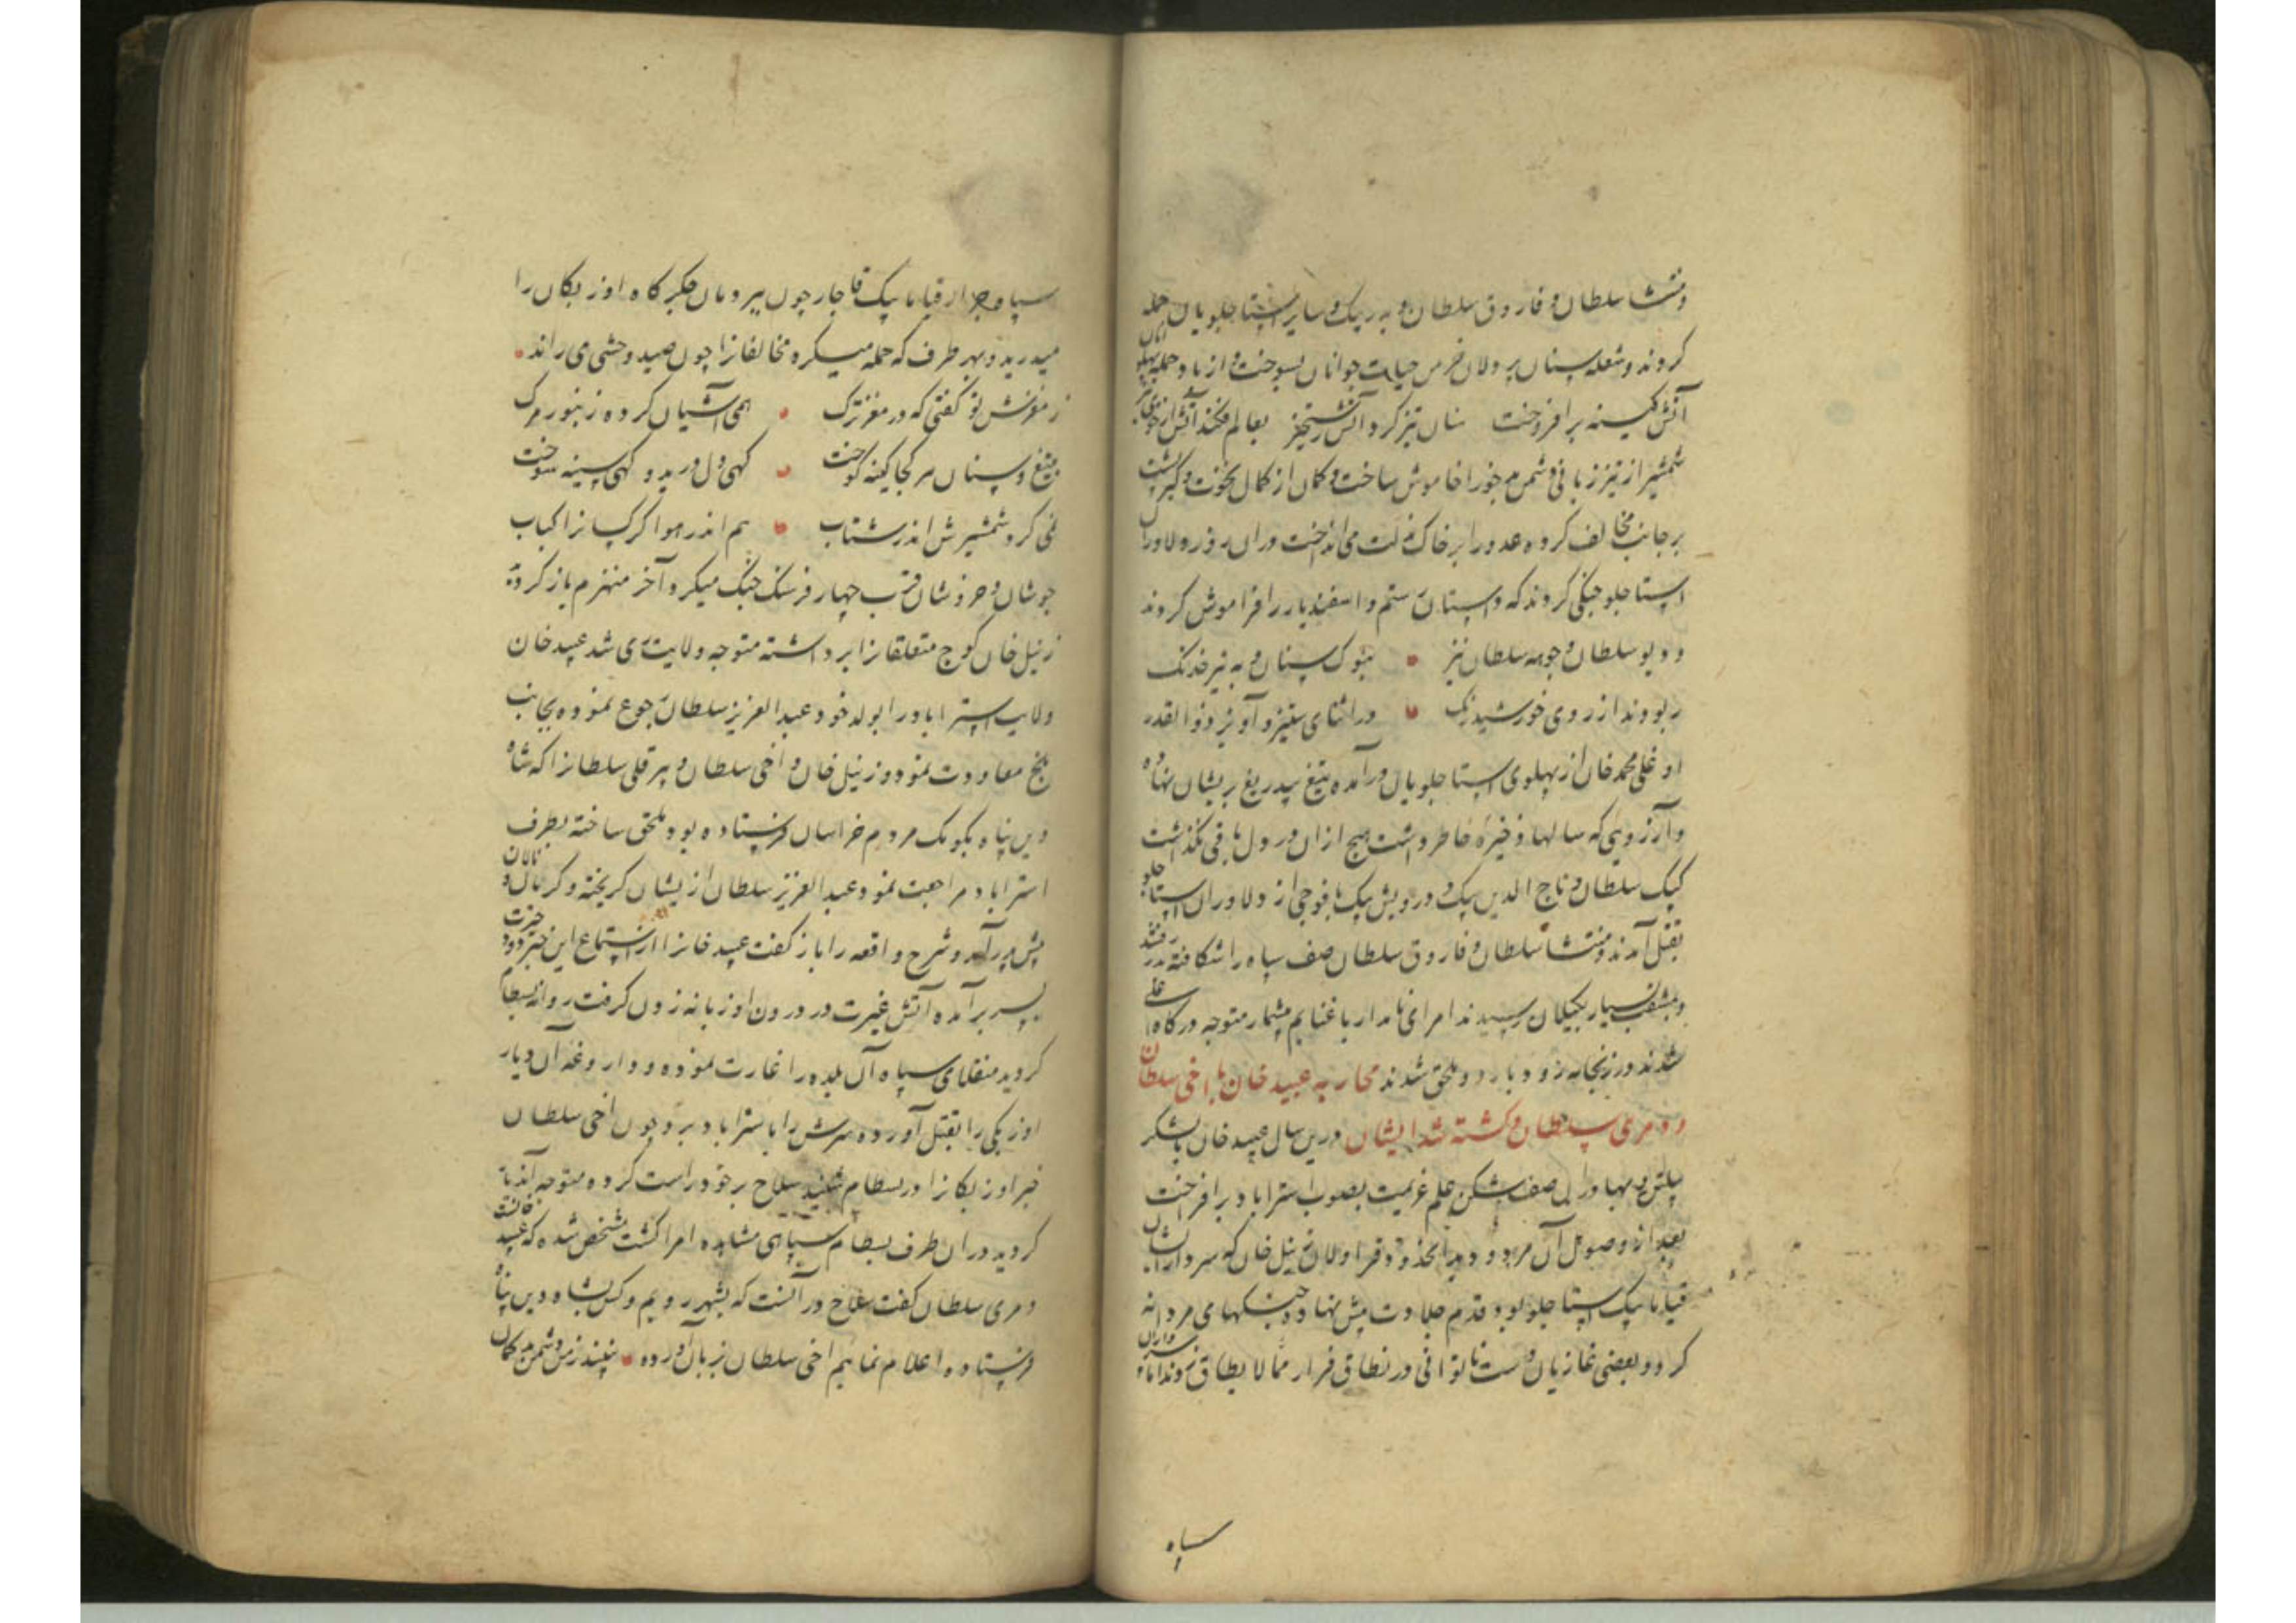 ومنتشا سلطان و فاروق سلطان و بدر بیک و سایر استاجلویان حمله
کردند و شعله سنان پردلان خرمن حیات جوانان بسوخت و از باد حمله پهلوانان
آتش کینه برافروخت سنان تیز کرد آتش رستخیز بعالم فکند آتش از
شمشیر از تیز زبانی دشمن خود را خاموش ساخت و کمان از کمال نخوت و کبر پشت
بر جانب مخالف کرده عدو را بر خاک مذلت می انداخت دران روز دلاوران
استاجلو جنکی کردند که داستان رستم و اسفندیار را فراموش کردند
ددیو سلطان و جوهه سلطان نیز بنوک سنان و به تیر خدنک
ربودند از روی خورشید رنک در اثنای ستیز و آویز ذوالقدر
اوغلی محمد خان از پهلوی استاجلویان درآمده تیغ بیدریغ بریشان نهاده
و آرزویی که سالها ذخیره خاطر داشت هیچ ازان در دل باقی نگذاشت
کپک سلطان و تاج الدین بیک و درویش بیک با فوجی از دلاوران استاجلو
بقتل آمدند و منتشا سلطان و فاروق سلطان صف سپاه را شکافته بدر رفتند
و بمشقت بسیار بکیلان رسیدند امرای نامدار با غنایم بیشمار متوجه درکاه اعلی
شدند در زنجانه رود باردو ملحق شدند محاربه عبید خان با اخی سلطان
و دمری سلطان و کشته شدن ایشان درین سال عبید خان با لشکر
پیلتن و بهادران صف شکن علم عزیمت بصوب استراباد برافراخت
بعد از وصول آن مردود بدانحدود قراولان زینل خان که سردار ایشان
قیاپا بیک استاجلو بود قدم جلادت پیش نهاد و جنکهای مردانه
کرد و بعضی غازیان دست ناتوانی در نطاق فرار مما لا یطاق زدند اما سواران
سپاه
سپاه جرار قیاپا بیک قاجار چون ببر دمان جکرکاه اوزبکان را
میدرید و بهر طرف که حمله میکرد مخالفانرا چون صید وحشی می راند
ز مغزش تو کفتی که در مغز ترک همی آشیان کرده زنبور مرک
بتیغ و سنان هر کجا کینه توخت کهی دل درید و کهی سینه سوخت
نمی کرد شمشیرش اندر شتاب هم اندر هوا کرکسانرا کباب
جوشان و خروشان قریب چهار فرسنک جنک میکرد آخر منهزم باز کردید
زینل خان کوچ متعلقانرا برداشته متوجه ولایت ری شد عبید خان
ولایت استراباد را بولد خود عبد العزیز سلطان رجوع نموده بجانب
بلخ معاودت نمود و زینل خان و اخی سلطان و پیر قلی سلطانرا که شاه
دین پناه بکومک مردم خراسان فرستاده بود ملحق ساخته بطرف
استراباد مراجعت نمود عبد العزیز سلطان ازیشان کریخته و کریان و نالان
پیش پدر آمد و شرح واقعه را باز کفت عبید خانرا از استماع این خبر دود حیرت
بسر برآمده آتش غیرت در درون او زبانه زدن کرفت روانه بسطام
کردید منقلای سپاه آن بلده را غارت نموده و داروغه آن دیار
اوزبکی را بقتل آورده سرش را باستراباد برد چون اخی سلطان
خبر اوزبکانرا در بسطام شنید سلاح بر خود راست کرده متوجه آنجا
کردید دران طرف بسطام سپاهی مشاهده امرا کشت مشخص شد که عبید خانست
دمری سلطان کفت صلاح در آنست که بشهر رویم و کس بشاه دین پناه
فرستاده اعلام نماییم اخی سلطان بزبان آورده نبیند ز من دشمن